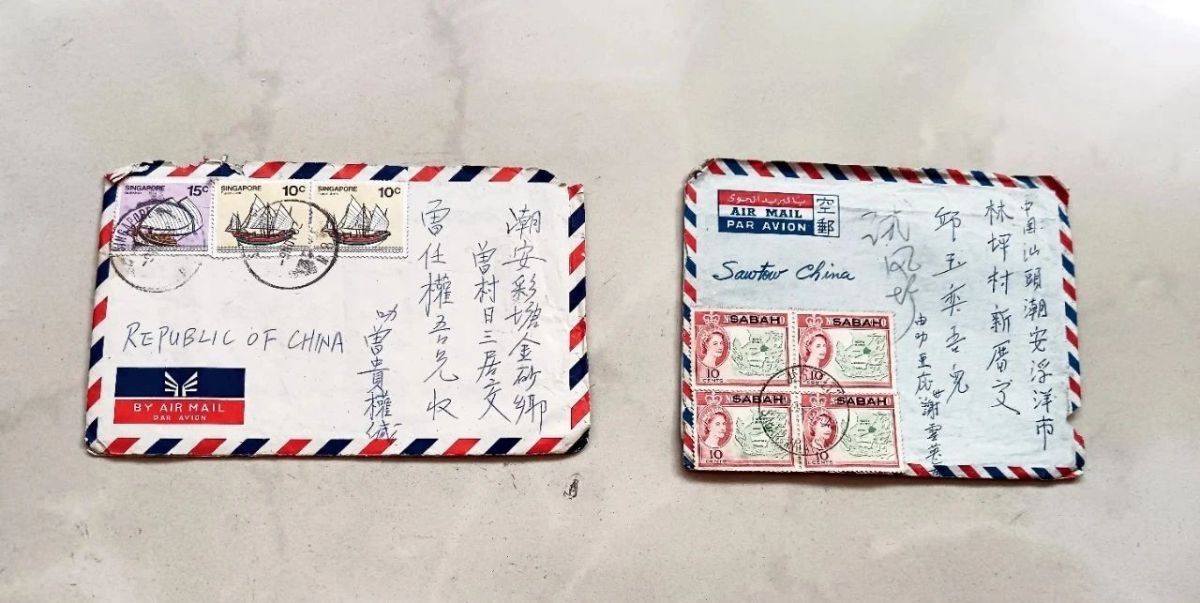 SINGAPORE 15c
SINGAPORE 10c
SINGAPORE 10c
潮安彩塘金砂鄉
曾村日三居交
任權吾兄收
叻曾貴權緘
REPUBLIC OF CHINA
BY AIR MAIL
PAR AVION
بالبريد الجوى
AIR MAIL
PAR AVION
空郵
Sawtow China
中国汕頭潮安浮洋市
林坪村新厝交
邱玉奕吾兒
謝雲英
SABAH
10
CENTS
SABAH
10
CENTS
SABAH
10
CENTS
SABAH
10
CENTS